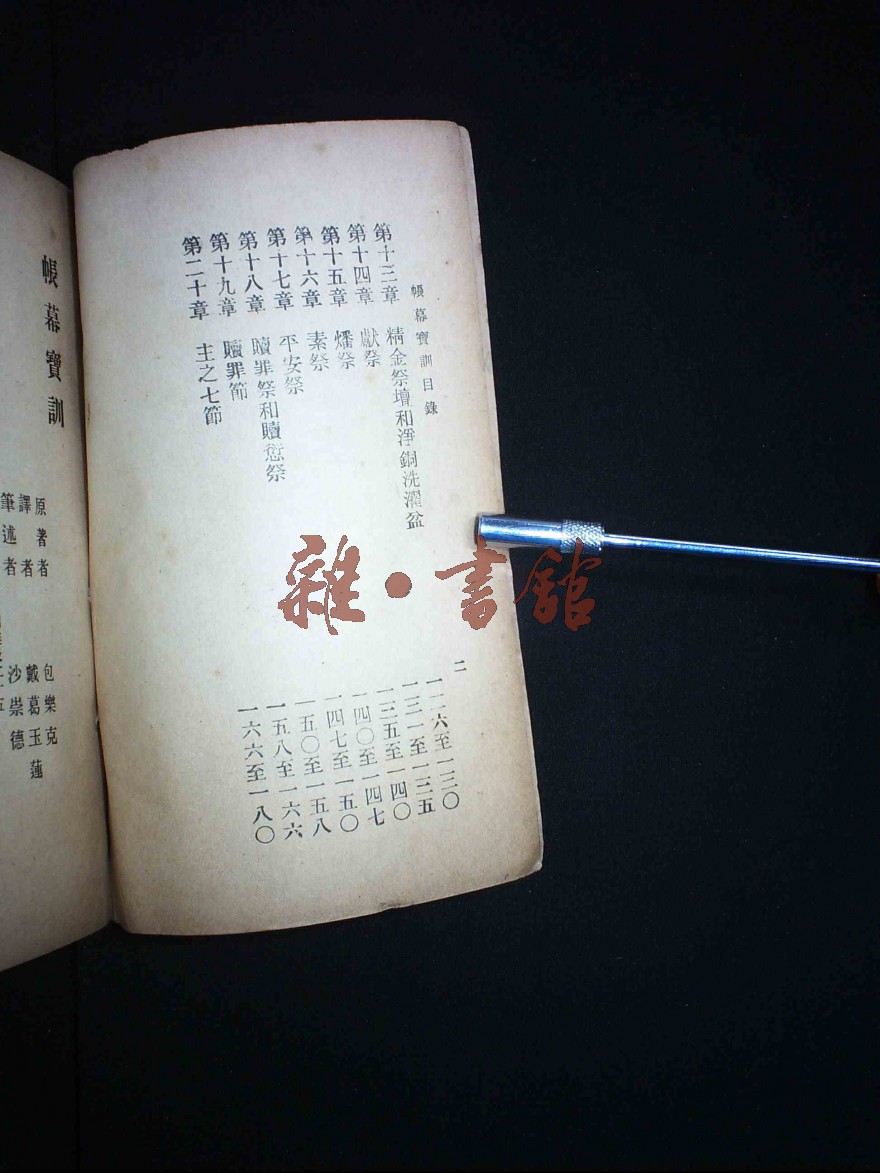 帳幕寶訓目錄　二
第十三章　精金祭壇和淨銅洗濯盆　一二六至一三〇
第十四章　獻祭　一三一至一三五
第十五章　燔祭　一三五至一四〇
第十六章　素祭　一四〇至一四七
第十七章　平安祭　一四七至一五〇
第十八章　贖罪祭和贖愆祭　一五〇至一五八
第十九章　贖罪節　一五八至一六六
第二十章　主之七節　一六六至一八〇
帳幕寶訓
原著者　包樂克
譯者　戴葛玉蓮
筆述者　沙崇德
雜•書館